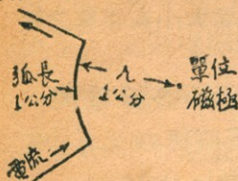 弧長
1公分
r
1公分
單位
磁極
電流